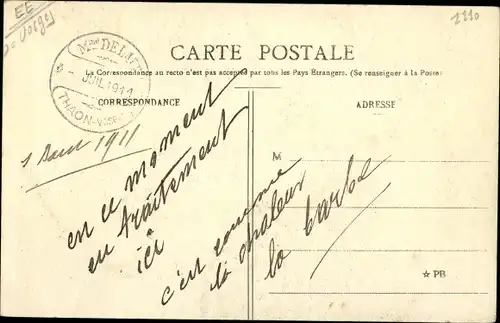 EE
Vosges
2210
Mme DELAIT
JUIL 1911
THAON-VOSGES
CARTE POSTALE
La Correspondance au recto n'est pas acceptée par tous les Pays Étrangers. (Se renseigner à la Poste)
CORRESPONDANCE
ADRESSE
1911
en ce moment
en traitement
ici
c'est comme
la chaleur
la barbe
M
☆ PB